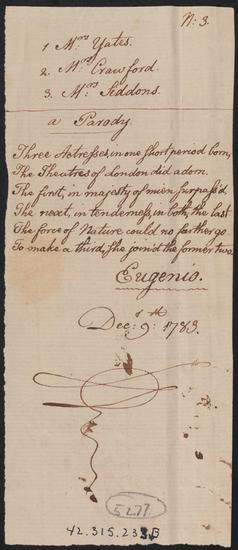 N: 3.
1 Mrs Yates.
2. Mrs Crawford.
3. Mrs Siddons.
a Parody.
Three Actresses, in one short period born,
The Theatres of London did adorn.
The first, in majesty of mien surpass'd
The next, in tenderness, in both, the last
The force of Nature could no farther go
To make a third, she join'd the former two.
Eugenio.
Decr: 9th: 1783.
5277
42.315.233B